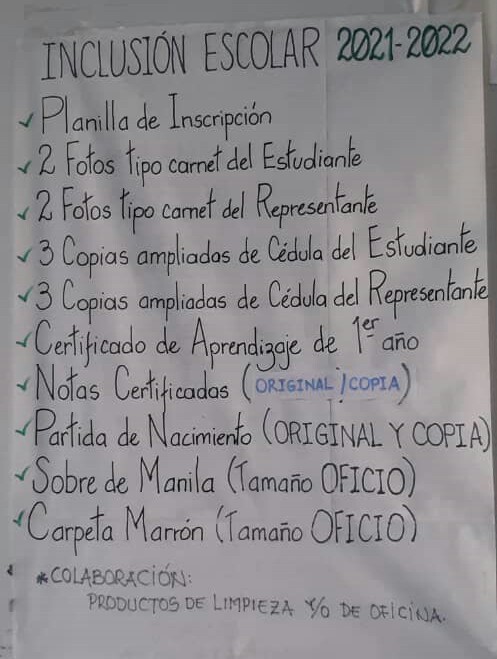 INCLUSIÓN ESCOLAR 2021-2022
✓ Planilla de Inscripción
✓ 2 Fotos tipo carnet del Estudiante
✓ 2 Fotos tipo carnet del Representante
✓ 3 Copias ampliadas de Cédula del Estudiante
✓ 3 Copias ampliadas de Cédula del Representante
✓ Certificado de Aprendizaje de 1er año
✓ Notas Certificadas (ORIGINAL/COPIA)
✓ Partida de Nacimiento (ORIGINAL Y COPIA)
✓ Sobre de Manila (Tamaño OFICIO)
✓ Carpeta Marrón (Tamaño OFICIO)
*COLABORACIÓN:
PRODUCTOS DE LIMPIEZA Y/O DE OFICINA.